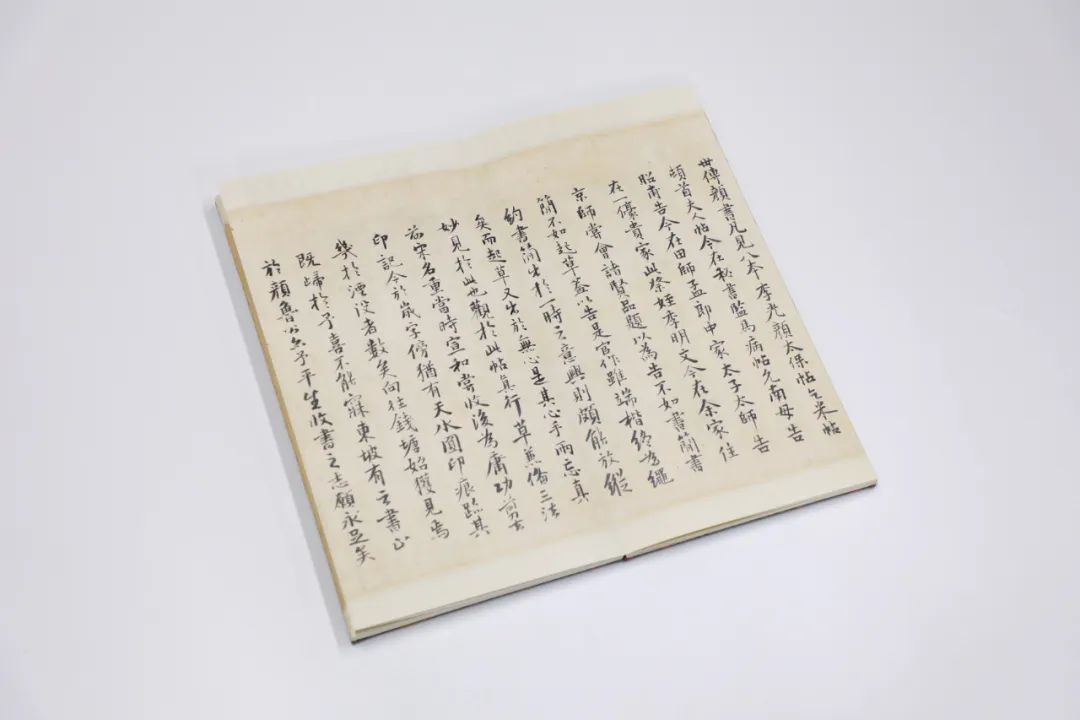 世傳顏書凡見八本李光顏太保帖乞米帖
頓首夫人帖今在秘書監馬病帖允南母告
昭甫告今在田師孟郎中家太子太師告
在一億貴家此祭姪季明文今在余家往
京師嘗會諸賢品題以為告不如書簡書
簡不如起草蓋以告是官作雖端楷終為繩
約書簡出於一時之意興則頗能放縱
矣而起草又出於無心是其心手兩忘真
妙見於此也觀於此帖真行草兼備三法
前宋名重當時宣和嘗收後為庸功剪去
印記今於歲字傍猶有天水圓印痕跡其
幾於湮沒者數矣向往錢塘始獲見焉
既歸於予喜不能寐東坡有云書止
於顏魯公予平生收書之志願永足矣